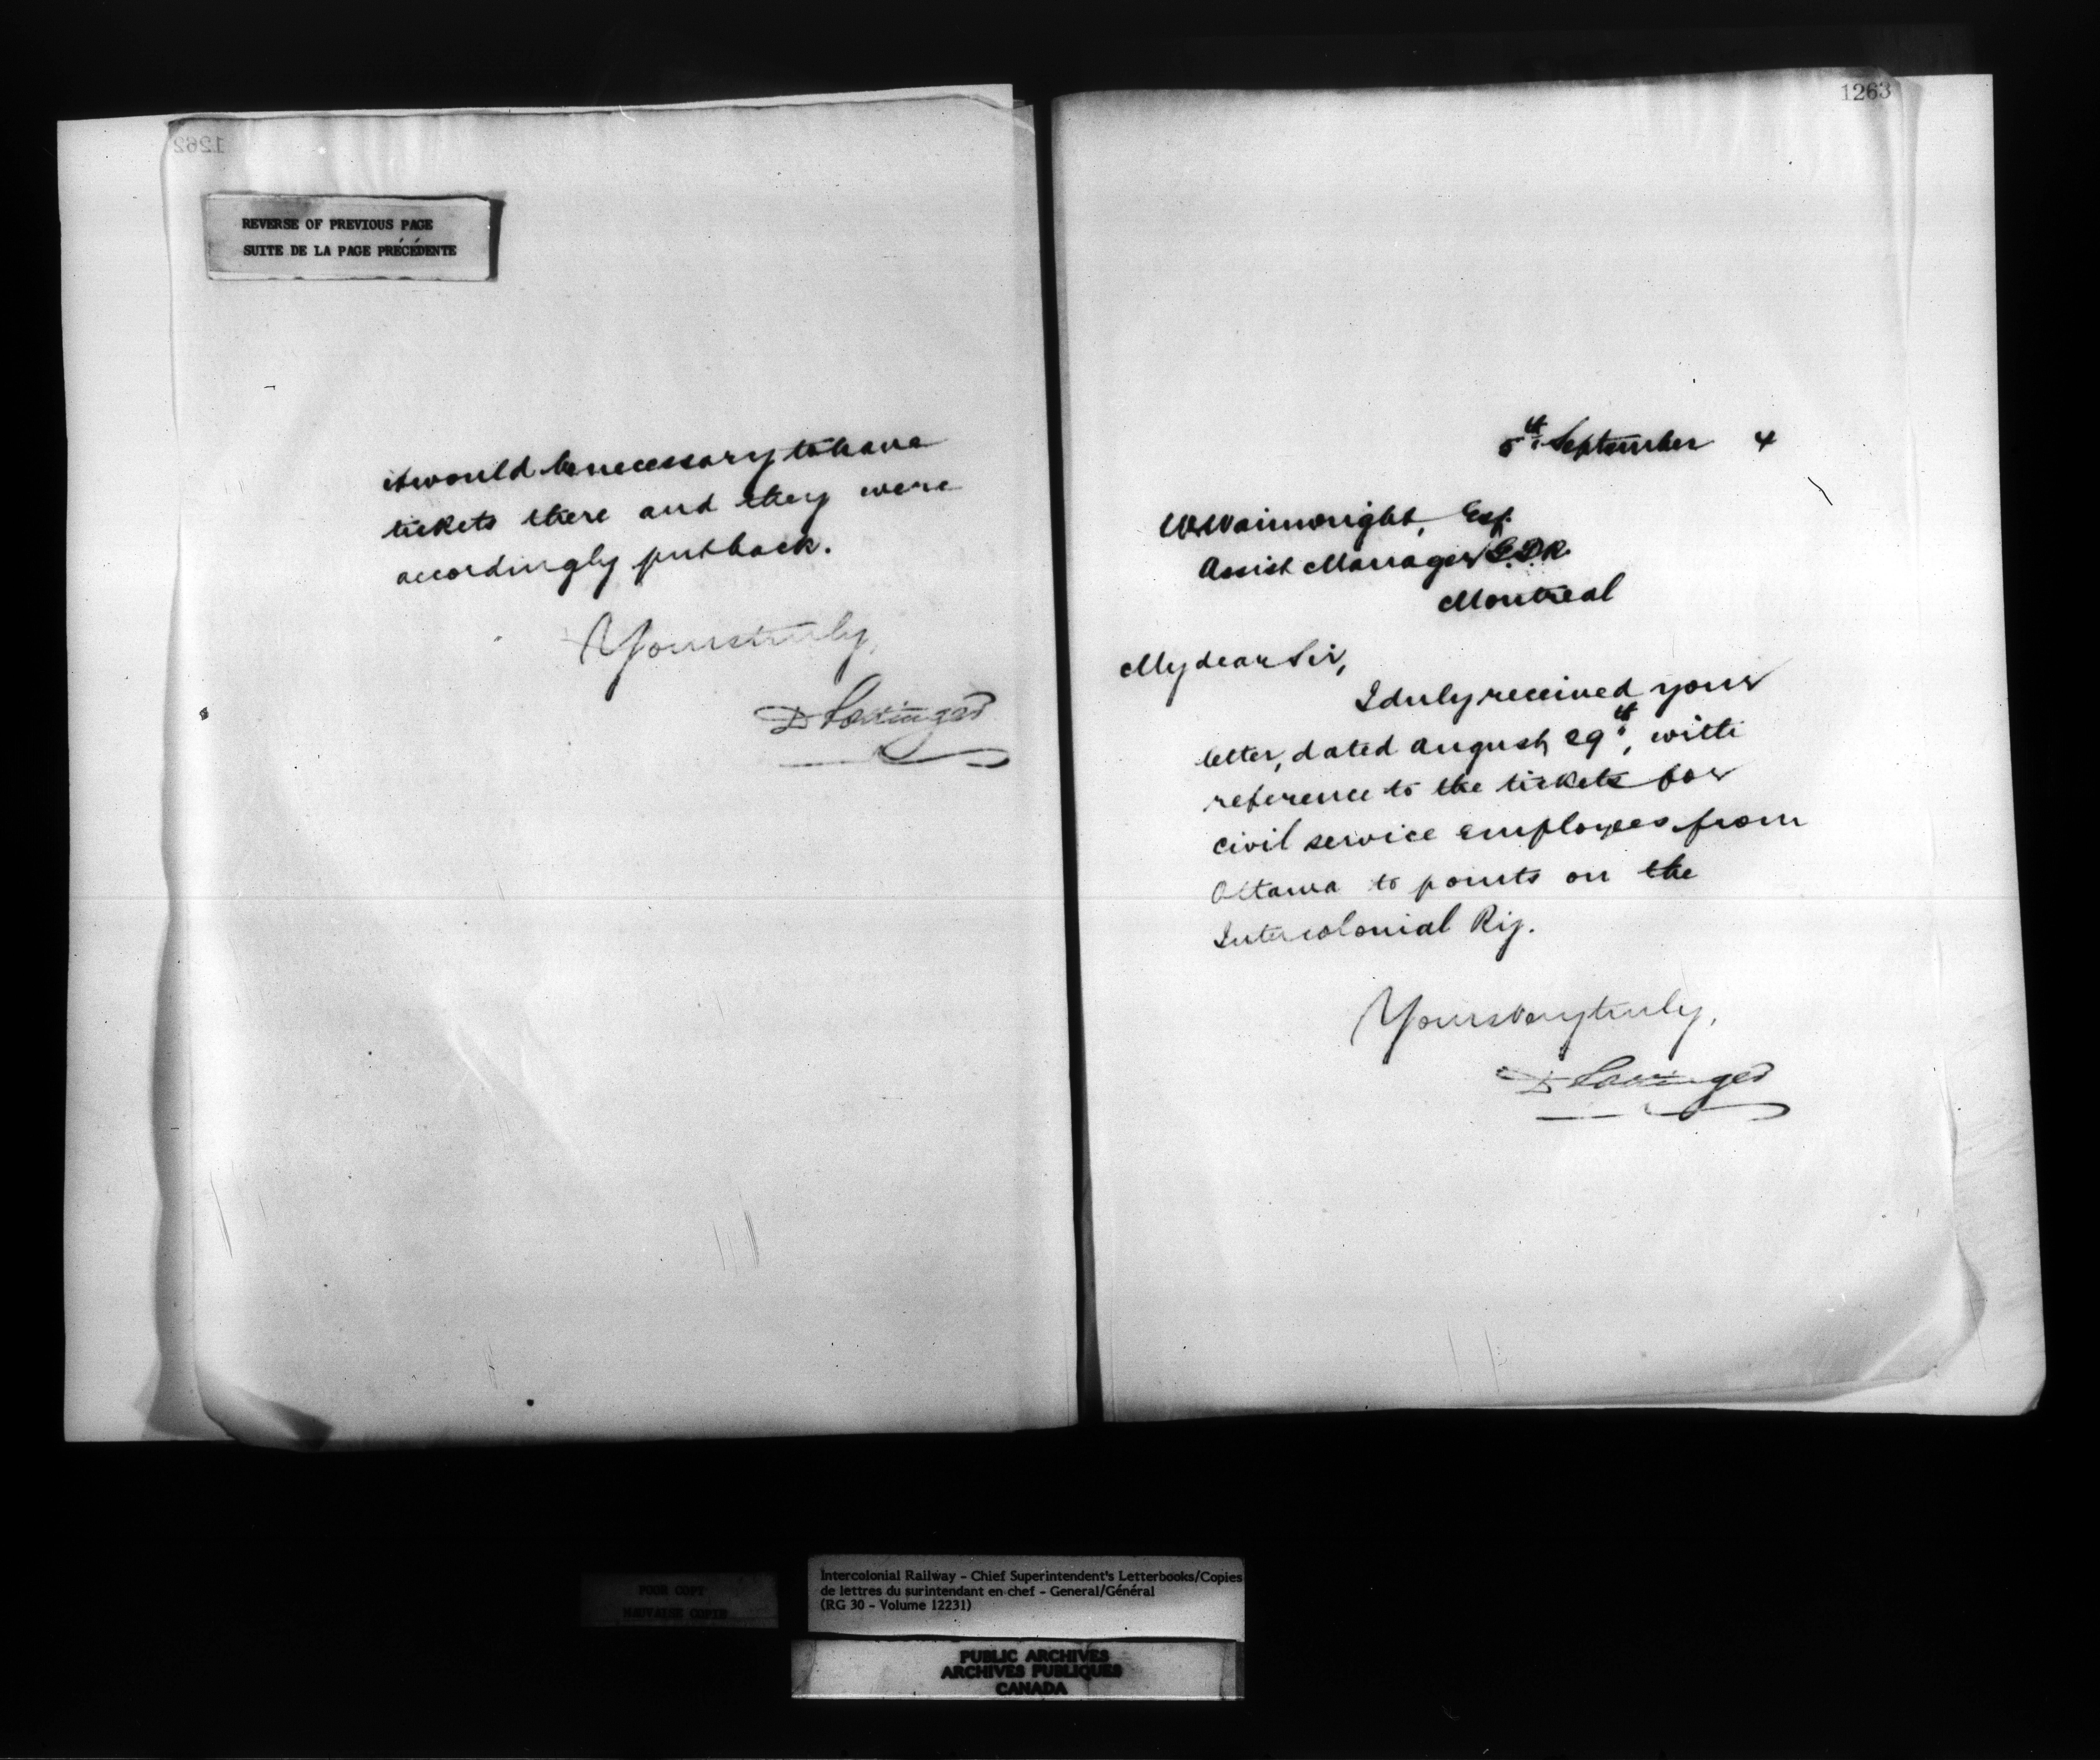 1262
REVERSE OF PREVIOUS PAGE
SUITE DE LA PAGE PRÉCÉDENTE
it would be necessary to have
tickets there and they were
accordingly put back.
Yours truly,
D Pottinger
1263
5th September 4
W Wainwright, Esq.
Assist Manager G.T.R.
Montreal
My dear Sir,
I duly received your
letter, dated August 29th, with
reference to the tickets for
civil service employees from
Ottawa to points on the
Intercolonial Ry.
Yours very truly,
D Pottinger
POOR COPY
MAUVAISE COPIE
Intercolonial Railway - Chief Superintendent's Letterbooks/Copies
de lettres du surintendant en chef - General/Général
(RG 30 - Volume 12231)
PUBLIC ARCHIVES
ARCHIVES PUBLIQUES
CANADA